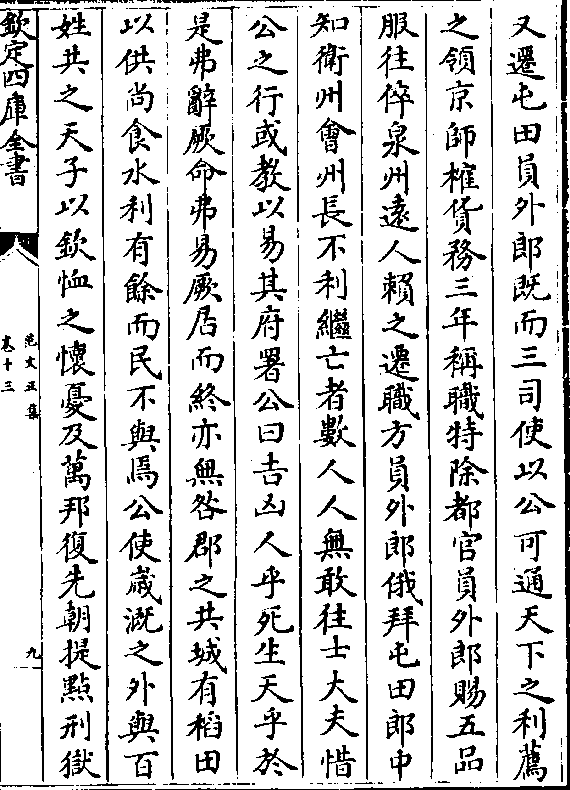 又遷屯田員外郎既而三司使以公可通天下之利薦
之領京師榷貨務三年稱職特除都官員外郎賜五品
服往倅泉州遠人賴之遷職方員外郎俄拜屯田郎中
知衛州會州長不利繼亡者數人人無敢往士大夫惜
公之行或教以易其府署公曰吉凶人乎死生天乎於
是弗辭厥命弗易厥居而終亦無咎郡之共城有稻田
以供尚食水利有餘而民不與焉公使歲溉之外與百
姓共之天子以欽恤之懷憂及萬邦復先朝提點刑獄
欽定四庫全書
范文正集
卷十三
九